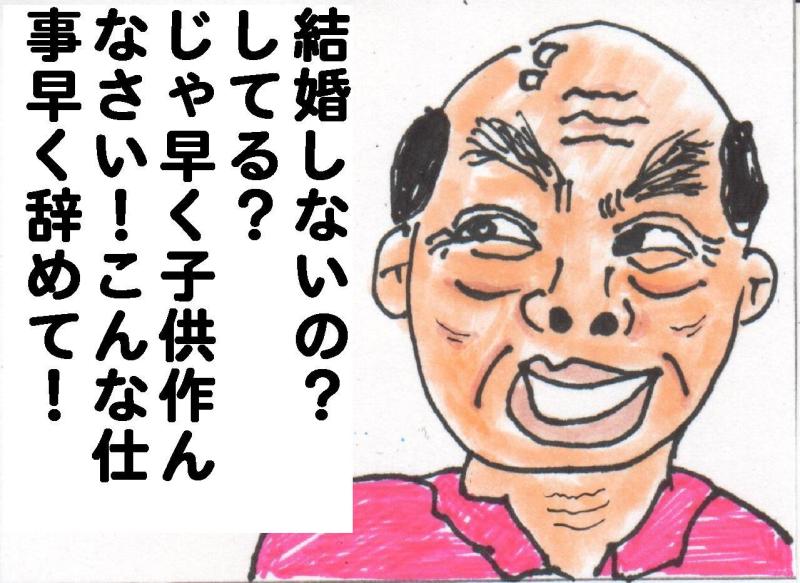 結婚しないの？
してる？
じゃ早く子供作ん
なさい！こんな仕
事早く辞めて！